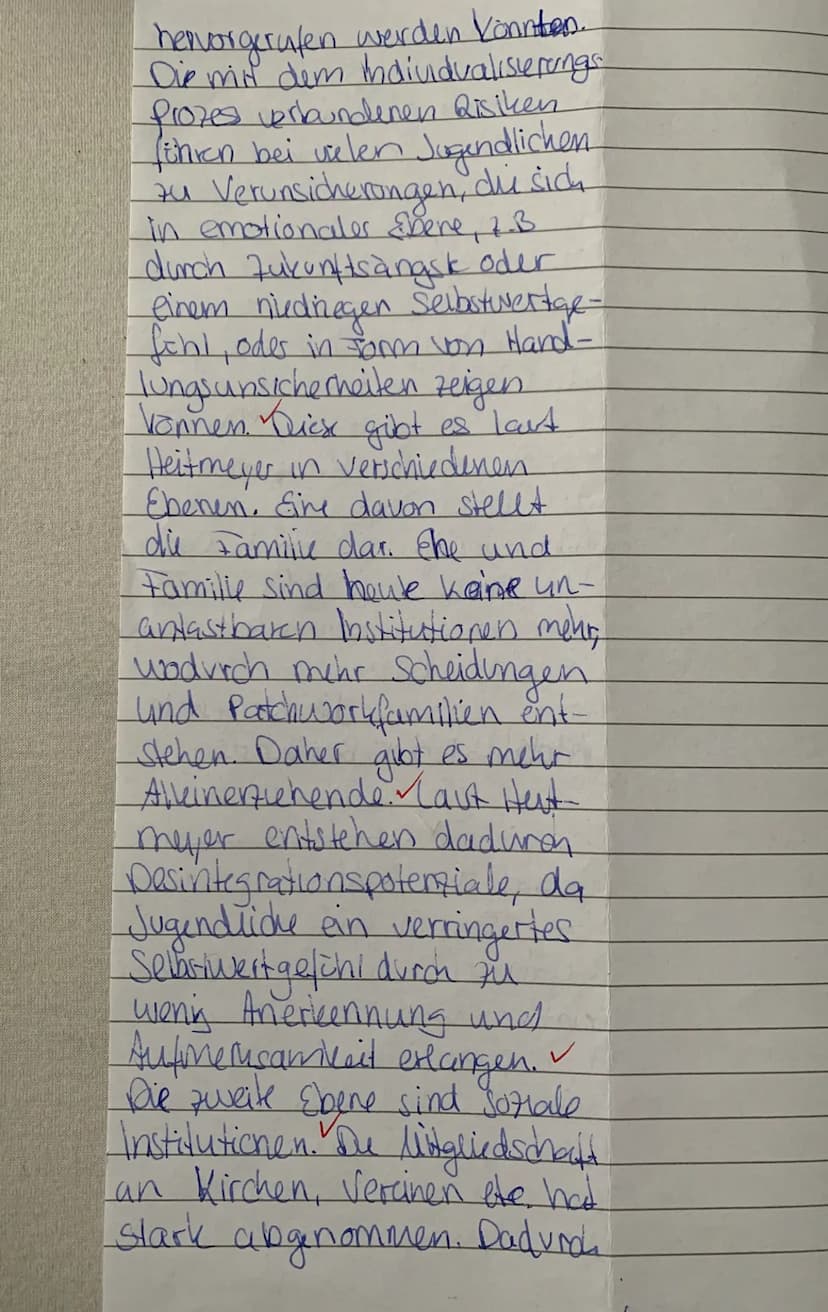 hervorgerufen werden könnten.
Die mit dem Individualisierungs-
prozes verbundenen Risiken
führen bei vielen Jugendlichen
zu Verunsicherungen, die sich
in emotionaler Ebene, z.B
durch Zukunftsängste oder
einem niedriegen Selbstwertge-
fühl, oder in Form von Hand-
lungsunsicherheiten zeigen
können. Diese gibt es laut
Heitmeyer in verschiedenen
Ebenen. Eine davon stellt
die Familie dar. Ehe und
Familie sind heute keine un-
antastbaren Institutionen mehr,
wodurch mehr Scheidungen
und Patchworkfamilien ent-
stehen. Daher gibt es mehr
Alleinerziehende. Laut Heit-
meyer entstehen dadurch
Desintegrationspotenziale, da
Jugendliche ein verringertes
Selbstwertgefühl durch zu
wenig Anerkennung und
Aufmerksamkeit erlangen.
Die zweite Ebene sind Soziale
Institutionen. Die Mitgliedschaft
an Kirchen, Vereinen etc. hat
stark abgenommen. Dadurch